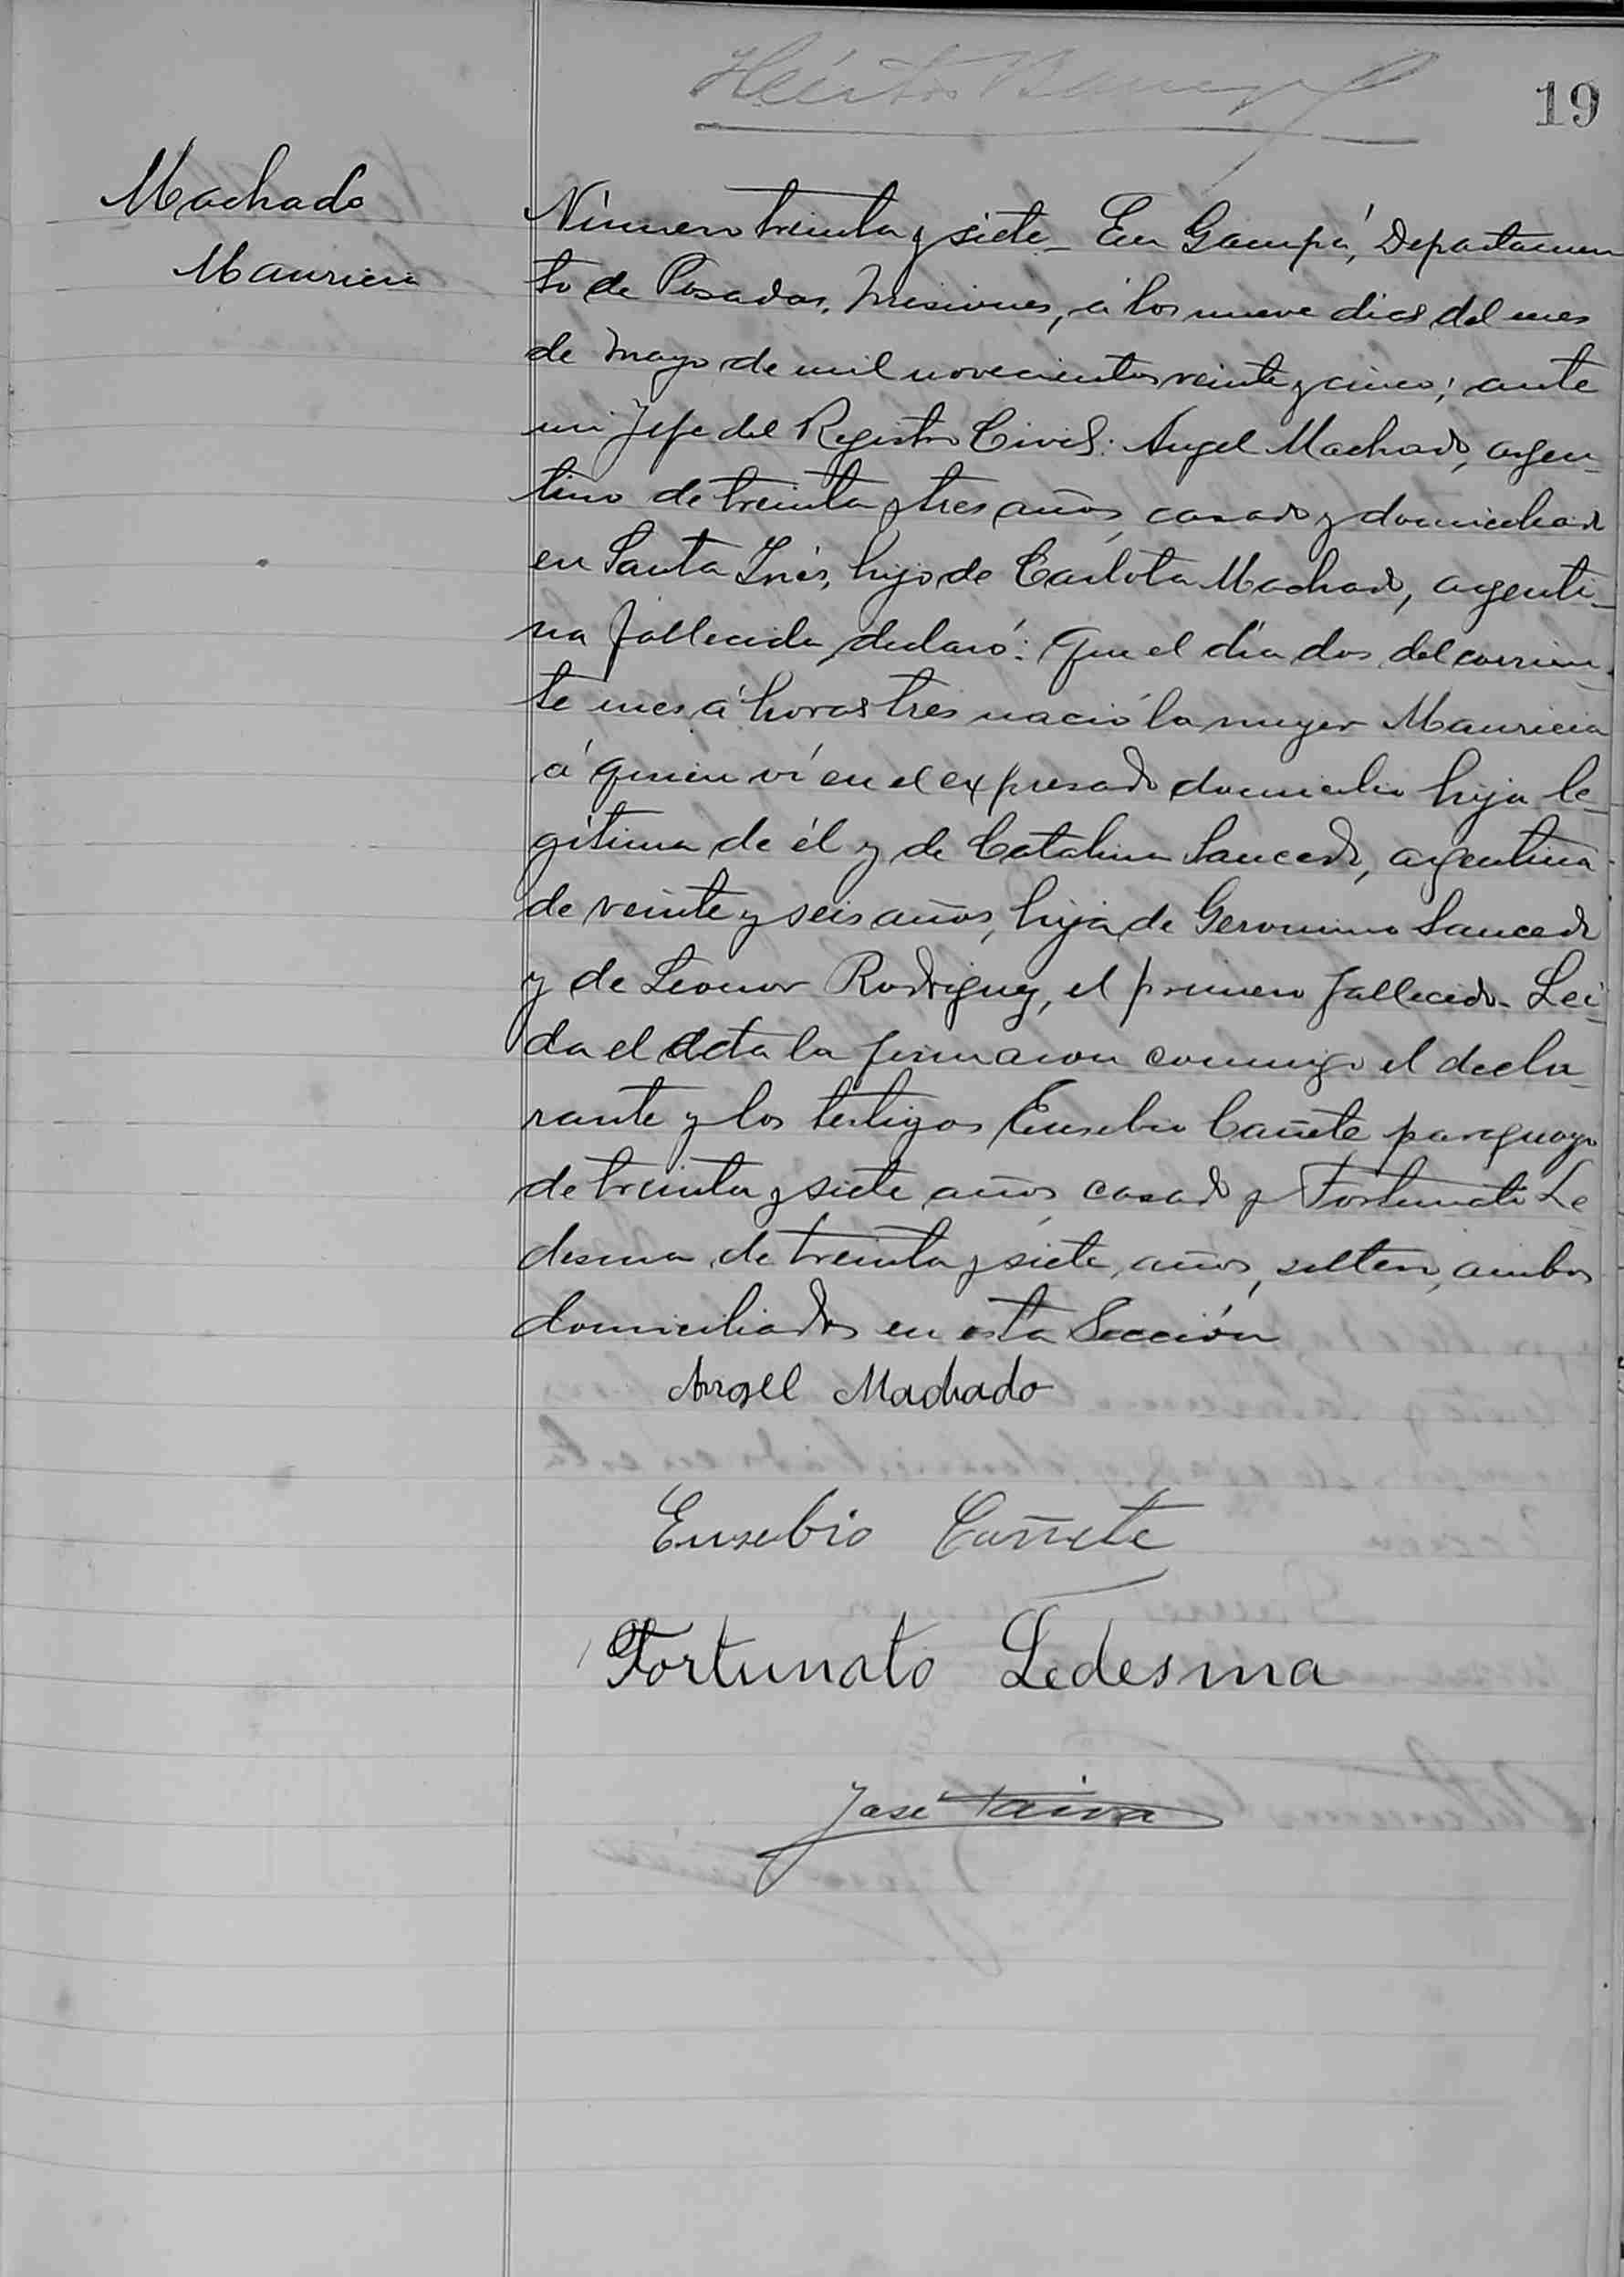 19
Machado
Mauricia
Número treinta y siete_ En Garupá, Departamen
to de Posadas, Misiones, á los nueve dias del mes
de Mayo de mil novecientos veinte y cinco; ante
mi Jefe del Registro Civil: Angel Machado, argen_
tino de treinta y tres años, casado y domiciliado
en Santa Inés, hijo de Carlota Machado, argenti_
na fallecida, declaró: Que el día dos del corrien_
te mes á horas tres nació la mujer Mauricia
á quien ví en el expresado domicilio hija le_
gítima de él y de Catalina Saucedo, argentina
de veinte y seis años, hija de Geronimo Saucedo
y de Leonor Rodriguez, el primero fallecido_ Lei_
da el acta la firmaron conmigo el decla_
rante y los testigos Eusebio Cañete paraguayo
de treinta y siete años, casado y Fortunato Le_
desma, de treinta y siete años, soltero, ambos
domiciliados en esta Sección
Angel Machado
Eusebio Cañete
Fortunato Ledesma
José Paiva